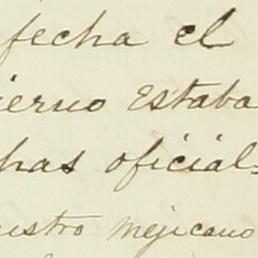 fecha el
ierno estaba
has oficial=
istro mejicano